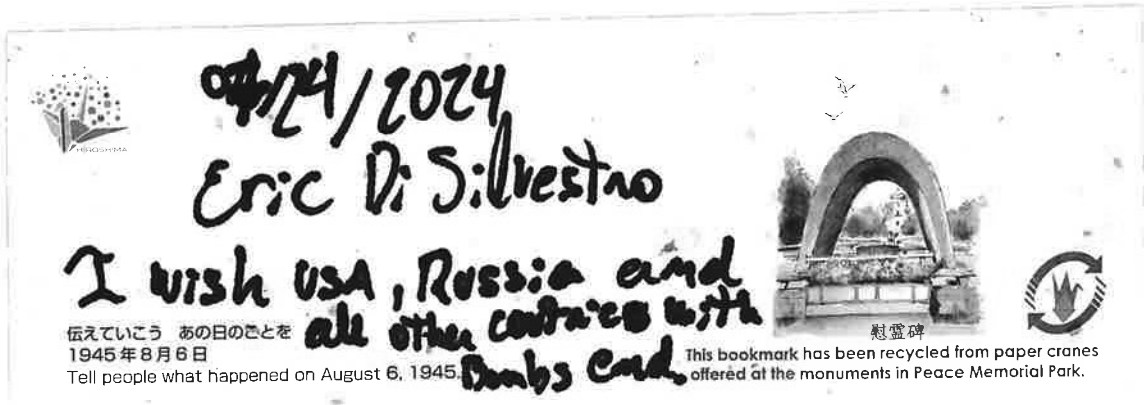 07/24/2024
Eric Di Silvestro
I wish USA, Russia and
all other contries with
Bombs end.
HIROSHIMA
伝えていこう あの日のことを
1945年8月6日
Tell people what happened on August 6, 1945.
慰霊碑
This bookmark has been recycled from paper cranes
offered at the monuments in Peace Memorial Park.